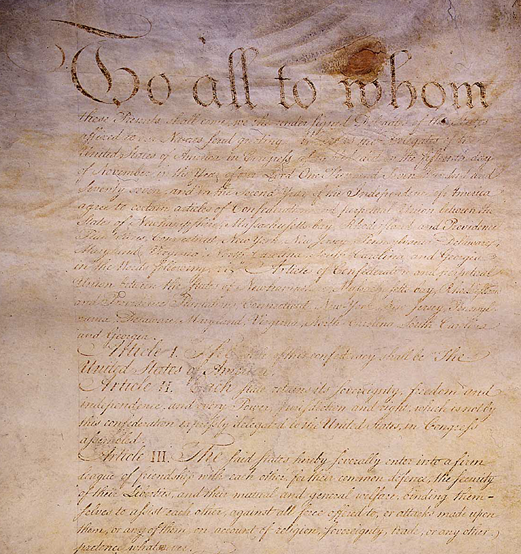 To all to whom
these Presents shall come, we the under signed Delegates of the States
affixed to our Names send greeting. Whereas the Delegates of the
United States of America in Congress assembled did on the fifteenth day
of November in the Year of our Lord One Thousand Seven Hundred and
Seventy seven, and in the Second Year of the Independence of America
agree to certain articles of Confederation and perpetual Union between the
States of Newhampshire, Massachusetts-bay, Rhodeisland and Providence
Plantations, Connecticut, New York, New Jersey, Pennsylvania, Delaware,
Maryland, Virginia, North Carolina, South Carolina, and Georgia
in the Words following, viz. Articles of Confederation and perpetual
Union between the States of Newhampshire, Massachusetts-bay, Rhodeisland
and Providence Plantations, Connecticut, New York, New Jersey, Pennsyl-
vania, Delaware, Maryland, Virginia, North Carolina, South Carolina
and Georgia.
Article I. The Stile of this confederacy shall be "The
United States of America."
Article II. Each state retains its sovereignty, freedom and
independence, and every Power, Jurisdiction and right, which is not by
this confederation expressly delegated to the United States, in Congress
assembled.
Article III. The said states hereby severally enter into a firm
league of friendship with each other, for their common defence, the security
of their Liberties, and their mutual and general welfare, binding them-
selves to assist each other, against all force offered to, or attacks made upon
them, or any of them, on account of religion, sovereignty, trade, or any other
pretence whatever.